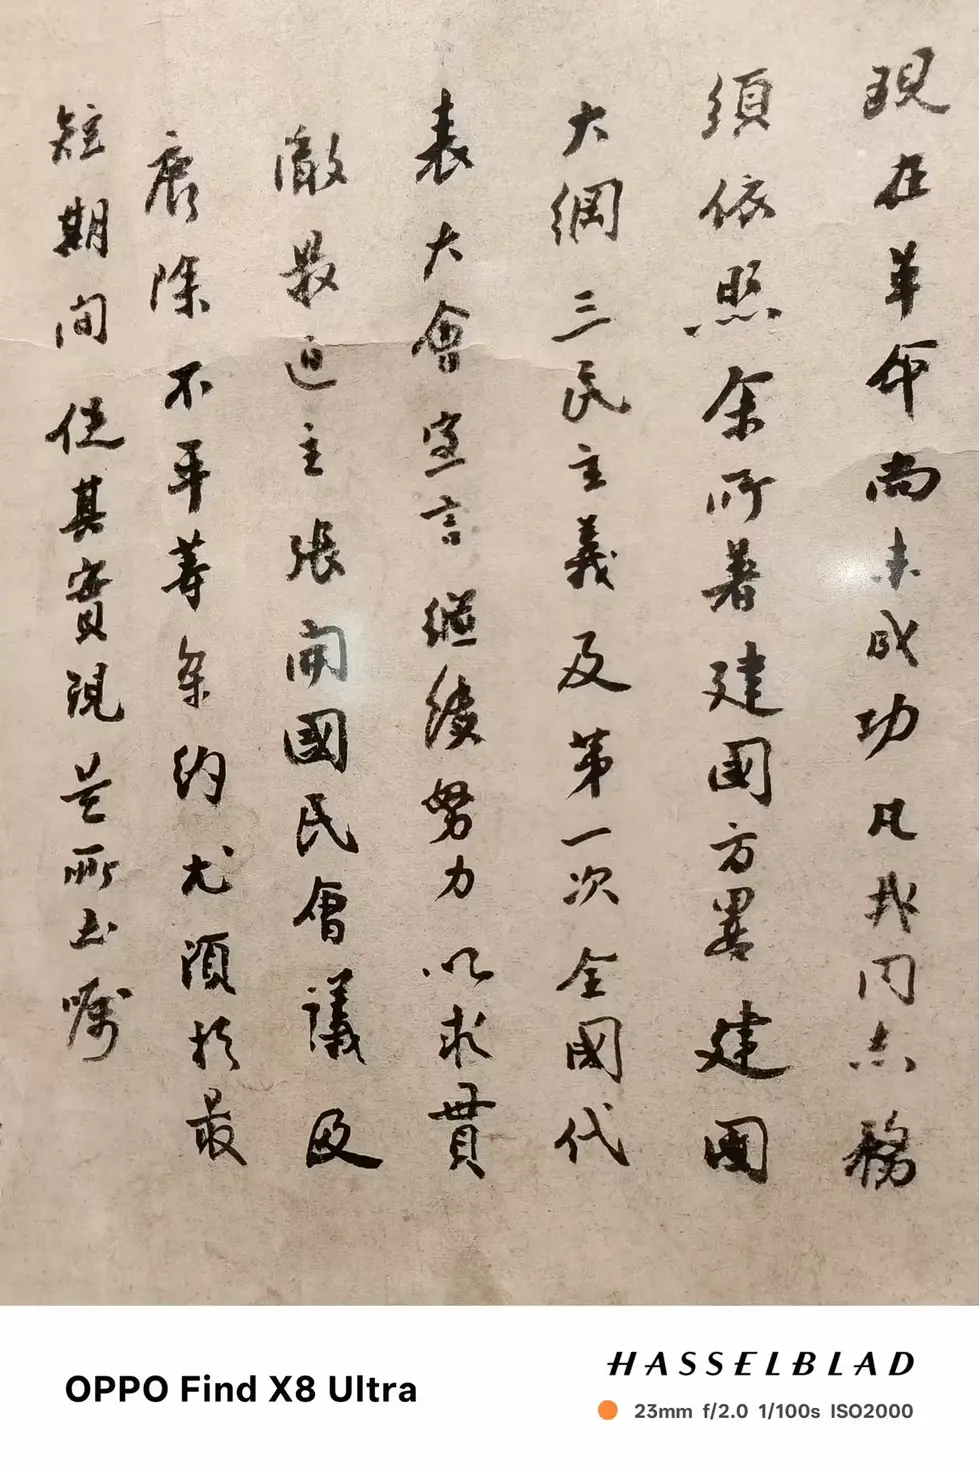 現在革命尚未成功凡我同志務
須依照余所著建國方畧建國
大綱三民主義及第一次全國代
表大會宣言繼續努力以求貫
澈最近主張開國民會議及
廢除不平等條約尤須於最
短期間促其實現是所至囑
OPPO Find X8 Ultra
HASSELBLAD
23mm f/2.0 1/100s ISO2000